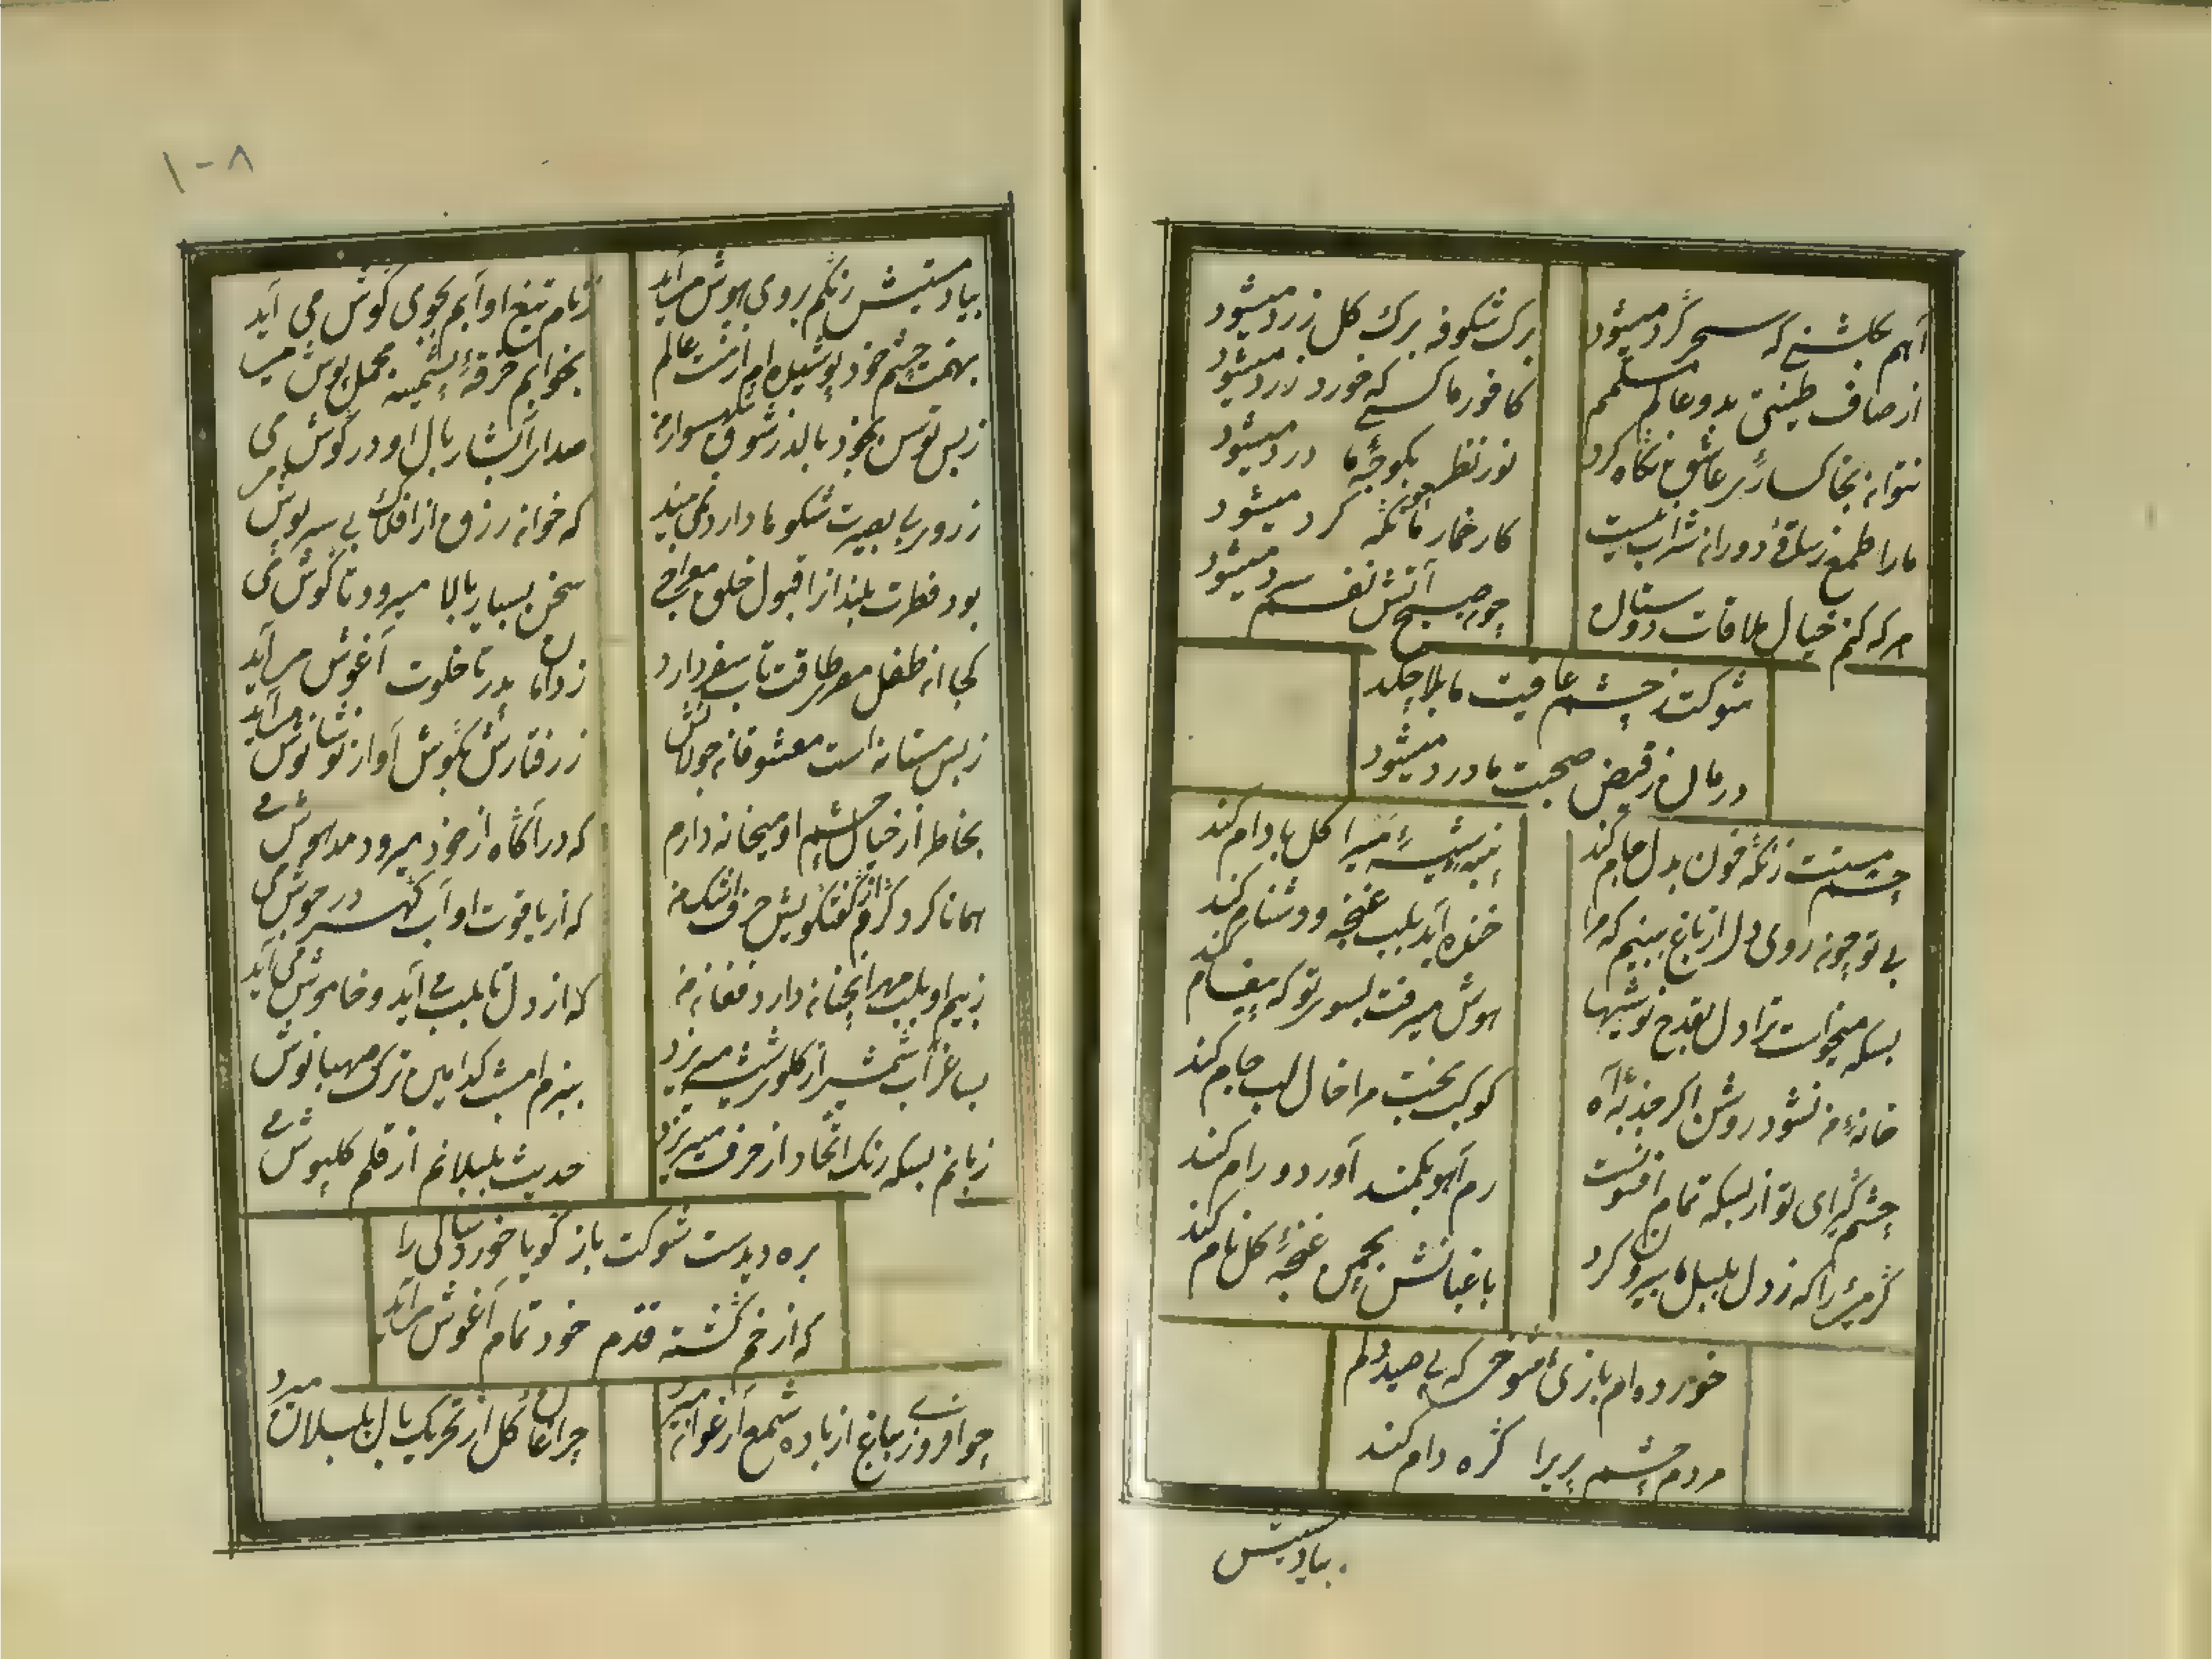 آهم بگلشنی که سحر گرد میشود
برک شکوفه برک کل زرد میشود
از صاف طینتی بدو عالم مسلمم
کافور ما کسی که خورد زرد میشود
نتوان بخاکساری عاشق نگاه کرد
نور نظر بکوچهٔ ما درد میشود
ما را طمع ز ساقی دوران شراب نیست
کار خمار ما نگه گرد میشود
هر که کنم خیال ملاقات دوستان
چو صبح آتش نفسم سرد میشود
شوکت ز چشم عافیت ما بلا چکد
درمان ز فیض صحبت ما درد میشود
چشم مستت ز نگه خون بدل جام کند
پنبهٔ شیشهٔ میرا کل بادام کند
بی تو چون روی دل از باغ ببینم که مرا
خنده آید بلب غنچه و دشنام کند
بسکه میخواست ترا دل بقدح نوشیها
هوش میرفت بسوی تو که پیغام کند
خانهٔ من نشود روشن اگر جذبهٔ آه
کوکب بخت مرا خال لب جام کند
چشم گیرای تو از بسکه تمام افسونست
رم آهو بکمند آورد و رام کند
گرمیی را که ز دل بلبل ما بیرون کرد
باغبانش بچمن غنچهٔ کل نام کند
خورده ام بازی شوخی که پی صید دلم
مردم چشم پریرا گره دام کند
بیاد مستیش
۱۰۸
بیاد مستیش رنگم بروی هوش می آید
ز نام تیغ او آبم بجوی گوش می آید
بهمت چشم خود پوشیده ام از زشت عالم
بخوابم خرقهٔ پشمینه مخمل پوش می
زبس توسن بخود بالد ز شوق شهسواری
صدای آبشار بال او در گوش می
ز روز بی بصیرت شکوها دارد نمی بیند
که خوان رزق از افلاک بی سرپوش
بود فطرت بلند از قبول خلق معراجی
سخن بسیار بالا میرود تا گوش می
کجا آن طفل طاقت تاب سفر دارد
ز دامان پدر تا خلوت آغوش می آید
زبس مستانه است معشوقانه جولانش
ز رفتارش بگوش آواز نوشانوش می آید
بخاطر از خیال چشم او میخانه دارم
که در آنگاه از خود میرود مدهوش می
همانا کرد گرم از گفتگویش حرف اشک من
که از یاقوت او آب گهر در جوش می
ز بیم او بلب مهر آنچنان دارد فغان من
که از دل تا بلب می آید و خاموش می آید
بساغر آب شمشیر از گلوی شیشه میریزد
ببزم امشب کدامین ترک صهبا نوش
زبانم بسکه رنک اتحاد از حرف میریزد
حدیث بلبلانم از قلم گلپوش می
بره دیدست شوکت باز گویا خوردسالی را
که از خم گشته قدم خود تمام آغوش می آید
چو افروزی بباغ از باده شمع ارغوانی
چراغان گل از تحریک بال بلبلان میرد